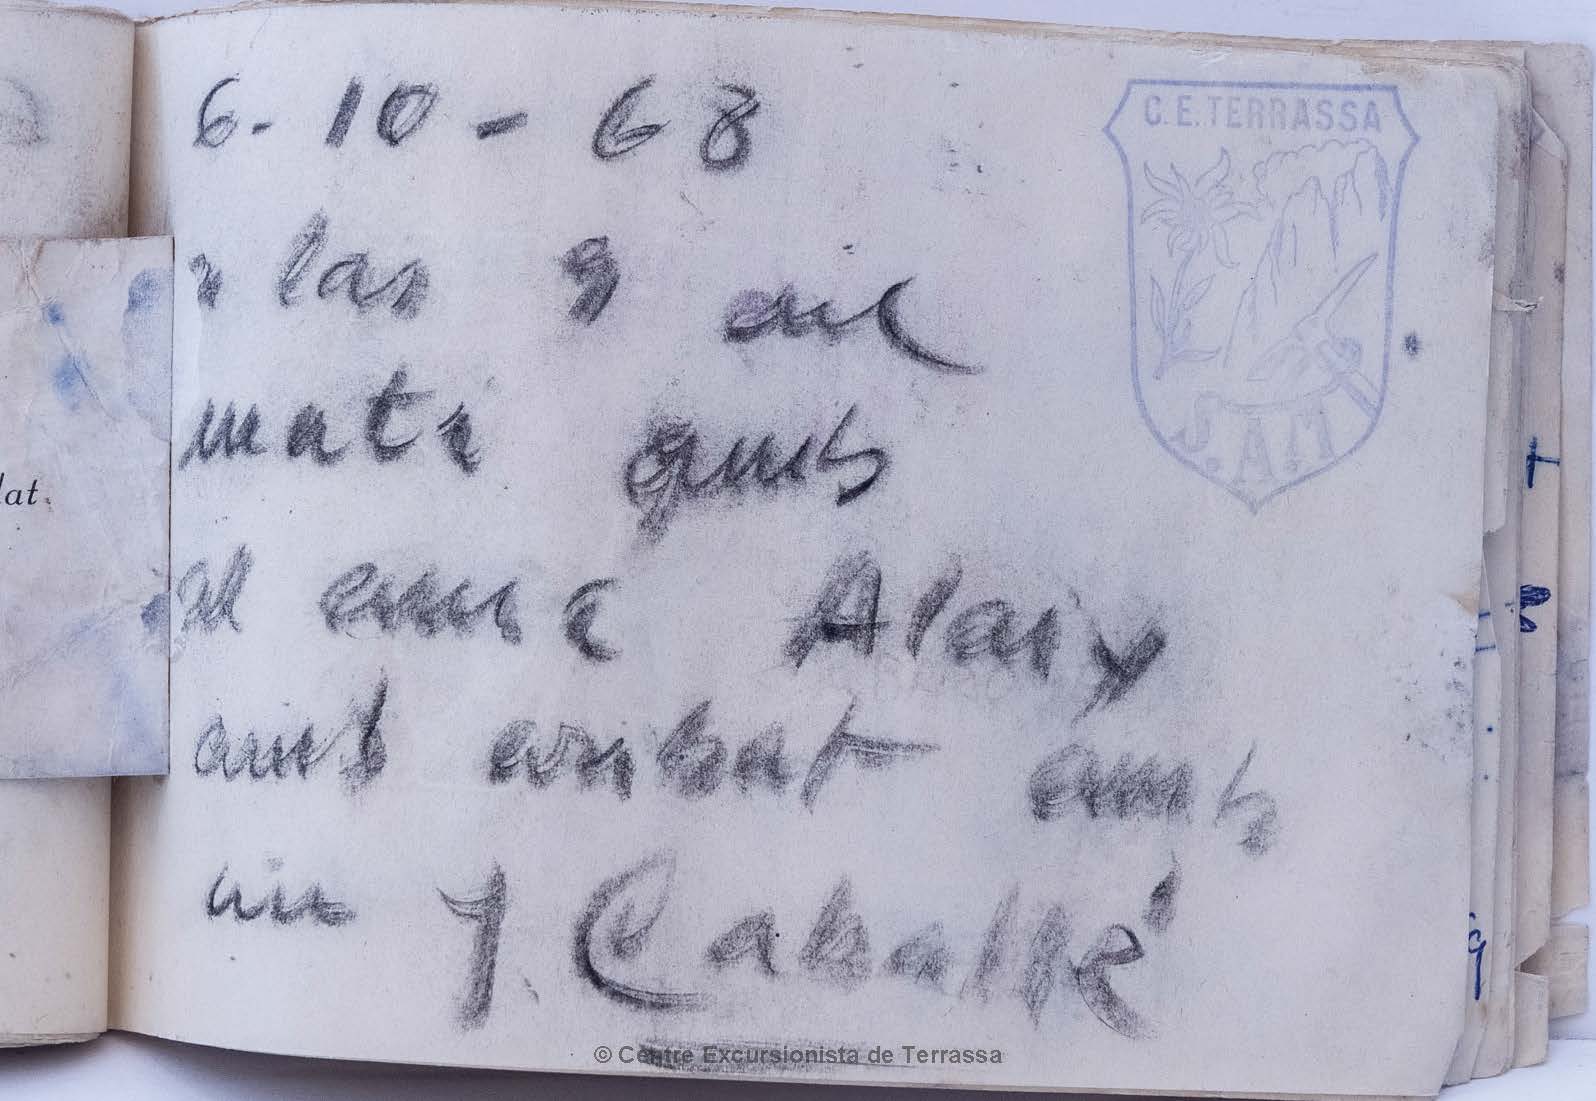 6-10-68
a las 9 del
mati guns
al enric Alaiy
ams arribat amb
un J. Caballé
C.E. TERRASSA
J.A.M
lat.
© Centre Excursionista de Terrassa